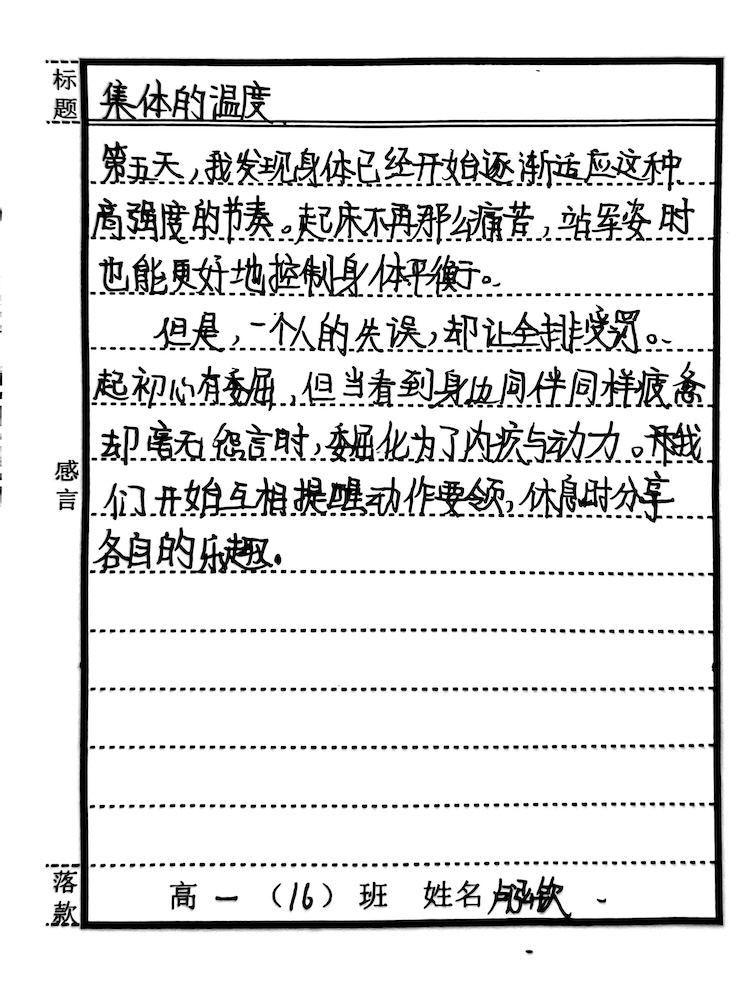 标题
集体的温度
第五天，我发现身体已经开始逐渐适应这种
高强度的节奏。起床不再那么痛苦，站军姿时
也能更好地控制身体平衡。
但是，一个人的失误，却让全排受罚。
起初心有委屈，但当看到身边同伴同样疲惫
却毫无怨言时，委屈化为了内疚与动力。我
们开始互相提醒动作要领，休息时分享
各自的乐趣。
感言
落款
高一（16）班 姓名 卢弘钦